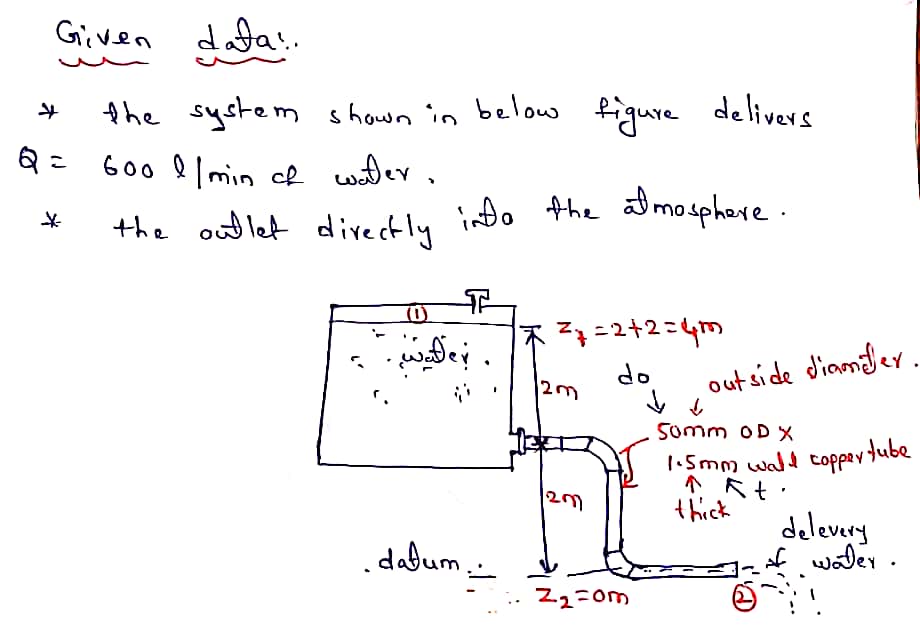 Given data:.
* the system shown in below figure delivers
Q = 600 l/min of water.
* the outlet directly into the atmosphere.
①
water.
Z1 = 2+2 = 4m
2m
do
outside diameter.
50mm OD X
1.5mm wall copper tube
t.
thick
2m
delevery
of water.
datum
Z2 = 0m
②